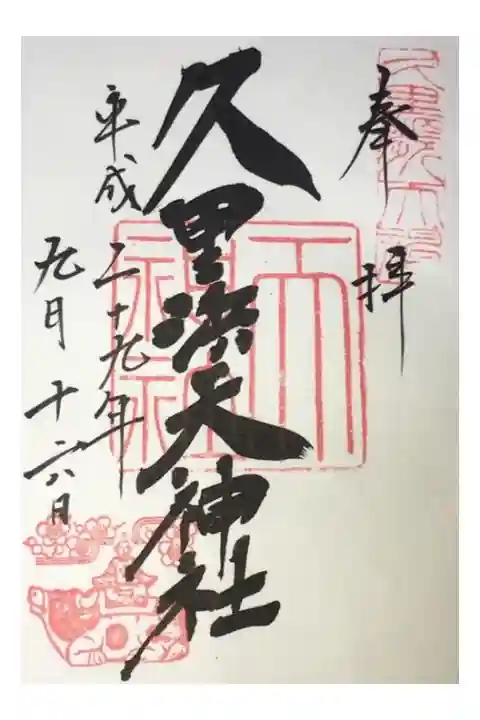 奉拝
久里浜天神社
平成二十九年
九月十六日
天神社